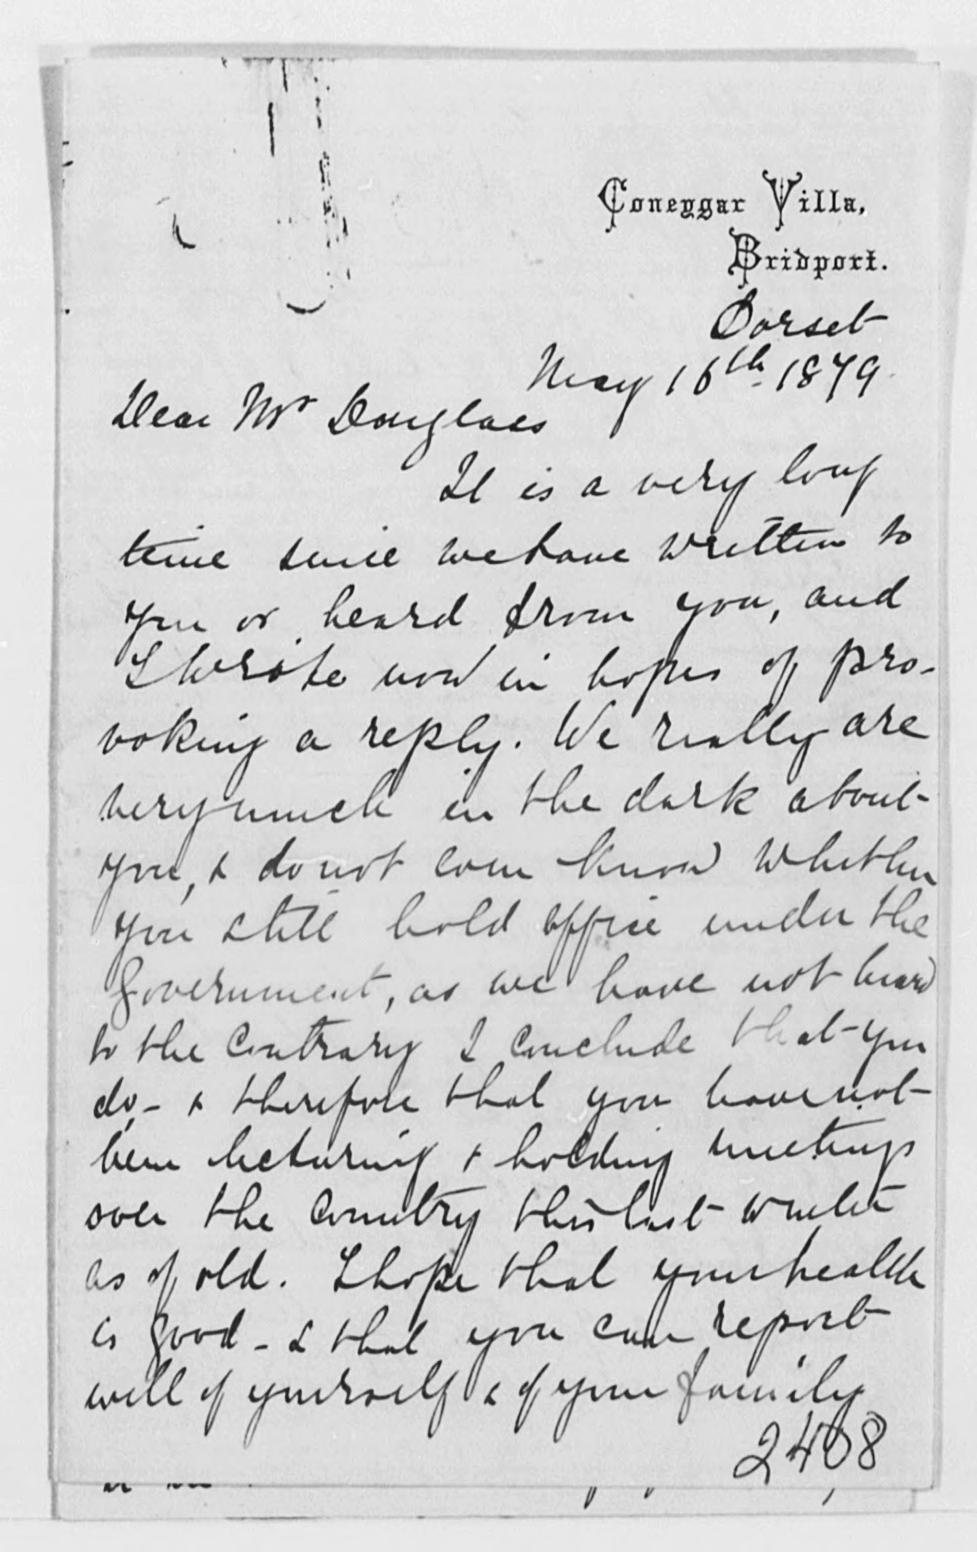 Coneygar Villa,
Bridport.
Dorset
May 16th 1879.
Dear Mr Douglass
It is a very long
time since we have written to
you or heard from you, and
I write now in hopes of pro-
voking a reply. We really are
very much in the dark about
you, & do not even know whether
you still hold office under the
Government, as we have not heard
to the contrary I conclude that you
do - & therefore that you have not
been lecturing & holding meetings
over the country this last winter
as of old. I hope that your health
is good - & that you can report
well of yourself & of your family
2408